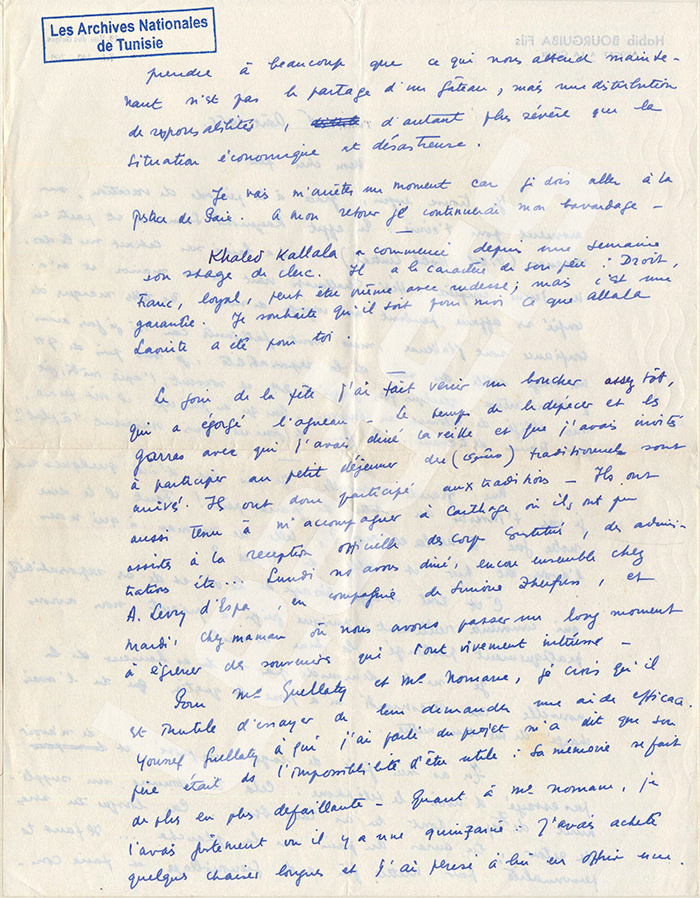 Les Archives Nationales
de Tunisie
Habib BOURGUIBA Fils
prendre à beaucoup que ce qui nous attend mainte-
nant n'est pas le partage d'un gâteau, mais une distribution
de responsabilités, d'autant plus sévère que la
situation économique est désastreuse.
Je vais m'arrêter un moment car je dois aller à la
Justice de Paix. A mon retour je continuerai mon bavardage -
Khaled Kallala a commencé depuis une semaine
son stage de clerc. Il a le caractère de son père : Droit,
Franc, loyal, peut être même avec rudesse; mais c'est une
garantie. Je souhaite qu'il soit pour moi ce que allala
Laouiti a été pour toi.
Le jour de la fête j'ai fait venir un boucher assez tôt,
qui a égorgé l'agneau - le temps de le dépecer et les
garres avec qui j'avais diné la veille et que j'avais invités
à participer au petit déjeuner des () traditionnels sont
arrivés. Ils ont donc participé aux traditions - Ils ont
aussi tenu à m'accompagner à Carthage où ils ont pu
assister à la reception officielle des corps constitués, des adminis-
trations etc... Lundi ns avons diné, encore ensemble chez
A. Levy d'Espa, en compagnie de Simone Dreifus, et
Mardi, chez maman où nous avons passer un long moment
à égrener des souvenirs qui l'ont vivement intéressé -
Pour Me Guellaty et Me Nomane, je crois qu'il
est inutile d'essayer de leur demander une aide efficace.
Youssef Guellaty à qui j'ai parlé du projet m'a dit que son
père était ds l'impossibilité d'être utile : sa mémoire se fait
de plus en plus défaillante - Quant à Me nomane, je
l'avais justement vu il y a une quinzaine : J'avais acheté
quelques chaises longues et j'ai pensé à lui en offrir une.